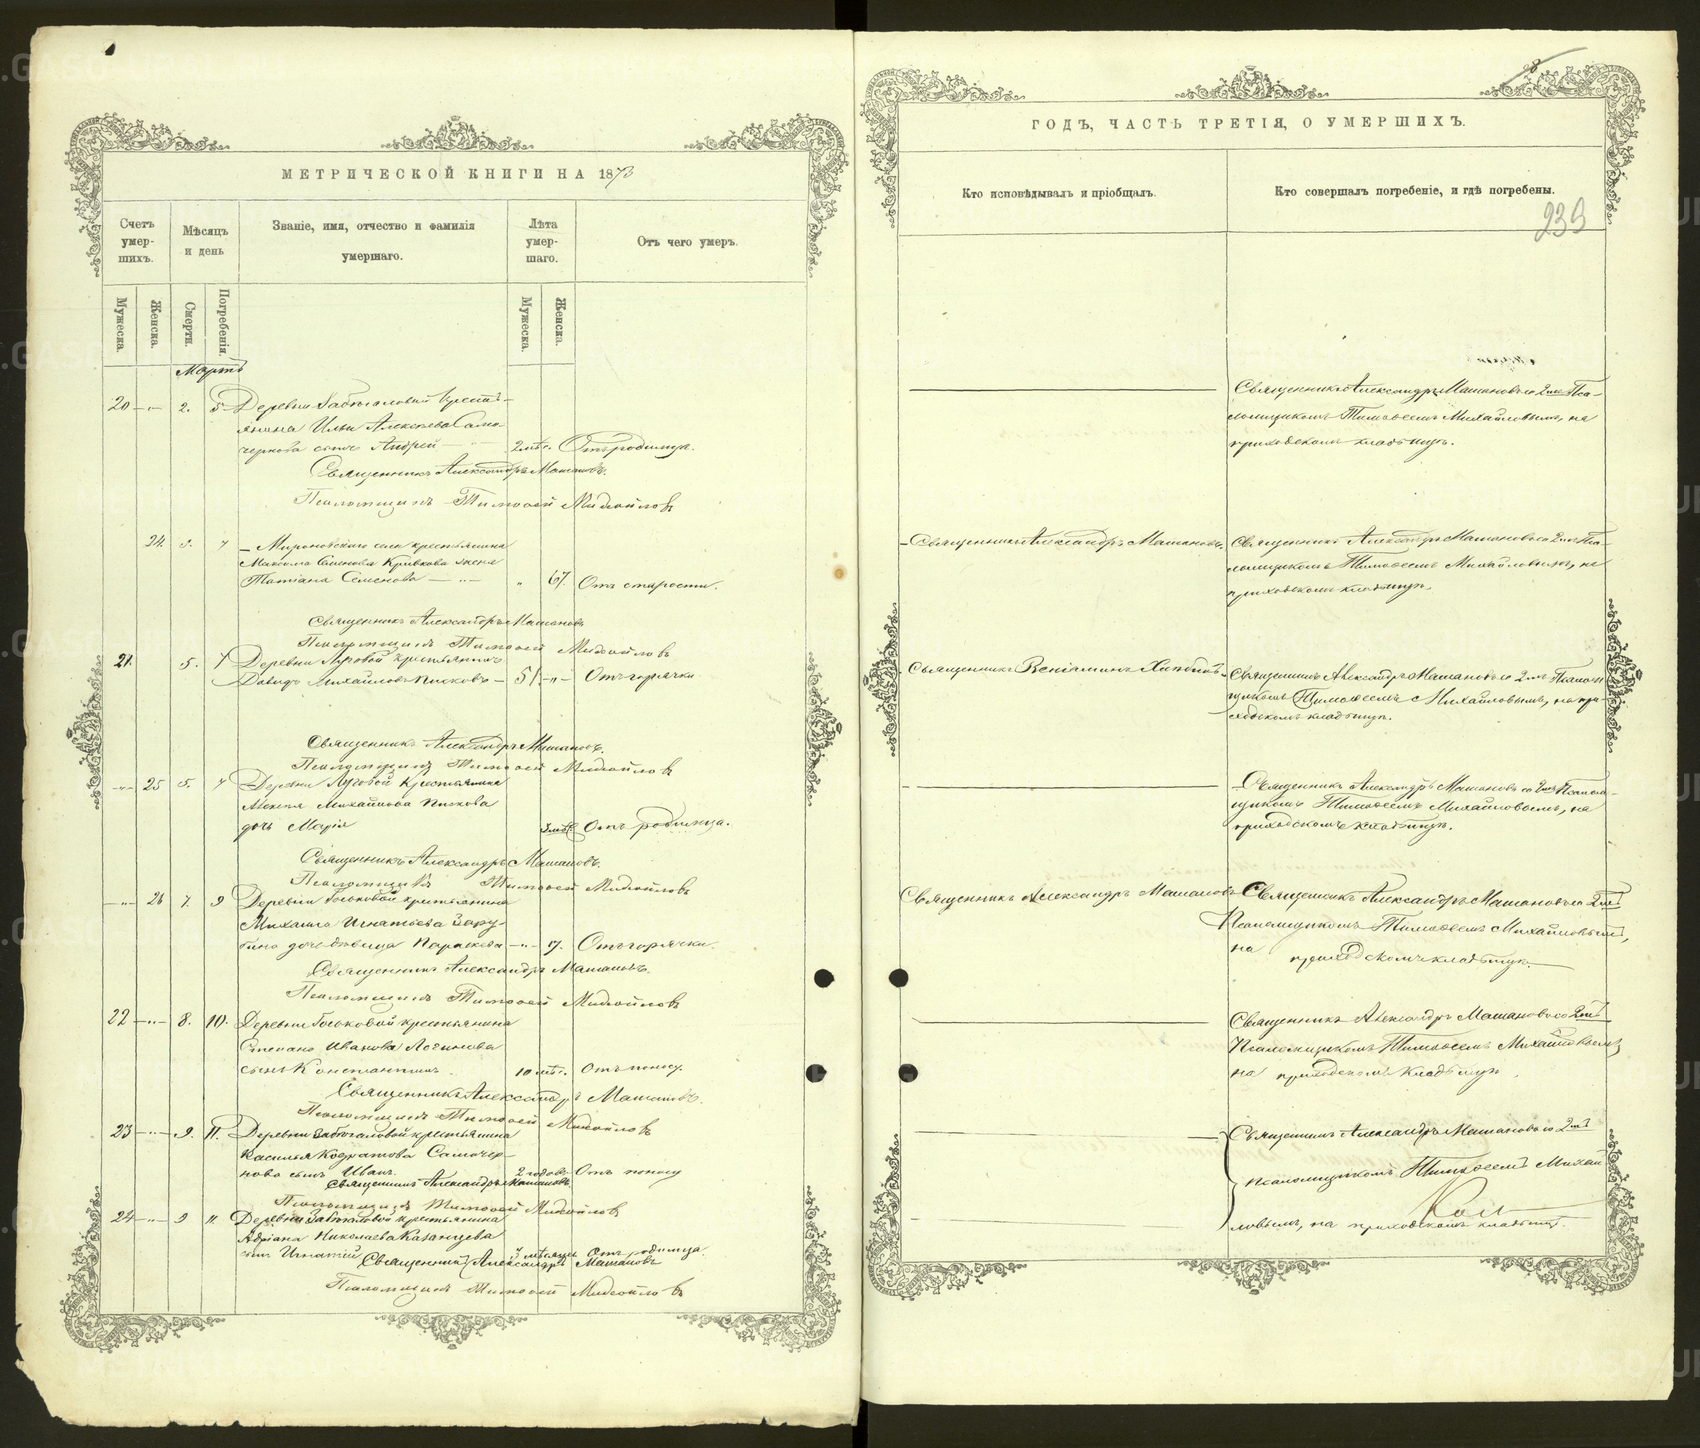 МЕТРИЧЕСКОЙ КНИГИ НА 1873
Счетъ умер-шихъ.
Мѣсяцъ и день
Званіе, имя, отчество и фамилія умершаго.
Лѣта умер-шаго.
Отъ чего умеръ.
Мужеска.
Женска.
Смерти.
Погребенія.
Мужеска.
Женска.
Мартъ
20 2. 5 Деревни крестъ-
янина Ильи Алексѣева Само
чернова сынъ Андрей 2 мѣс. Отъ родимца.
Священникъ Александръ Машановъ.
Псаломщикъ Тимофей Михайловъ
24. 3. 7 Мироновскаго села крестьянина
Максима Семенова Кривкова жена
Татіана Семенова 67. Отъ старости.
Священникъ Александръ Машановъ
Псаломщикъ Тимофей Михайловъ
21. 5. 7 Деревни Луговой крестьянинъ
Давидъ Михайловъ Писковъ 51 Отъ горячки
Священникъ Александръ Машановъ.
Псаломщикъ Тимофей Михайловъ
25 5. 7 Деревни Луговой крестьянина
Алексѣя Михайлова Пискова
дочь Марія 3 мѣс. Отъ родимца.
Священникъ Александръ Машановъ.
Псаломщикъ Тимофей Михайловъ
26 7. 9 Деревни крестьянина
Михаила Игнатьева Зару-
бина дочь дѣвица Параскева 17. Отъ горячки.
Священникъ Александръ Машановъ.
Псаломщикъ Тимофей Михайловъ
22 8. 10. Деревни крестьянина
Степана Иванова
сынъ Константинъ 10 мѣс. Отъ поносу.
Священникъ Александръ Машановъ.
Псаломщикъ Тимофей Михайловъ
23 9. 11. Деревни крестьянина
Василья Кодратова Самочер-
нова сынъ Иванъ. 2 годовъ Отъ поносу
Священникъ Александръ Машановъ.
Псаломщикъ Тимофей Михайловъ
24 9 11. Деревни крестьянина
Адріана Николаева Казанцева
сынъ Игнатій мѣсяцъ Отъ родимца.
Священникъ Александръ Машановъ
Псаломщикъ Тимофей Михайловъ
28
ГОДЪ, ЧАСТЬ ТРЕТІЯ, О УМЕРШИХЪ.
Кто исповѣдывалъ и пріобщалъ.
Кто совершалъ погребеніе, и гдѣ погребены.
239
Священникъ Александръ Машановъ со 2мъ Пса-
ломщикомъ Тимофеемъ Михайловымъ, на
приходскомъ кладбищѣ.
Священникъ Александръ Машановъ.
Священникъ Александръ Машановъ со 2мъ Пса-
ломщикомъ Тимофеемъ Михайловымъ, на
приходскомъ кладбищѣ.
Священникъ Веніаминъ
Священникъ Александръ Машановъ со 2мъ Псалом-
щикомъ Тимофеемъ Михайловымъ, на при-
ходскомъ кладбищѣ.
Священникъ Александръ Машановъ со 2мъ Псалом-
щикомъ Тимофеемъ Михайловымъ, на
приходскомъ кладбищѣ.
Священникъ Александръ Машановъ
Священникъ Александръ Машановъ со 2мъ
Псаломщикомъ Тимофеемъ Михайловымъ,
на приходскомъ кладбищѣ.
Священникъ Александръ Машановъ со 2мъ
Псаломщикомъ Тимофеемъ Михайловымъ
на приходскомъ кладбищѣ.
Священникъ Александръ Машановъ со 2мъ
псаломщикомъ Тимофеемъ Михай
ловымъ, на приходскомъ кладбищѣ.